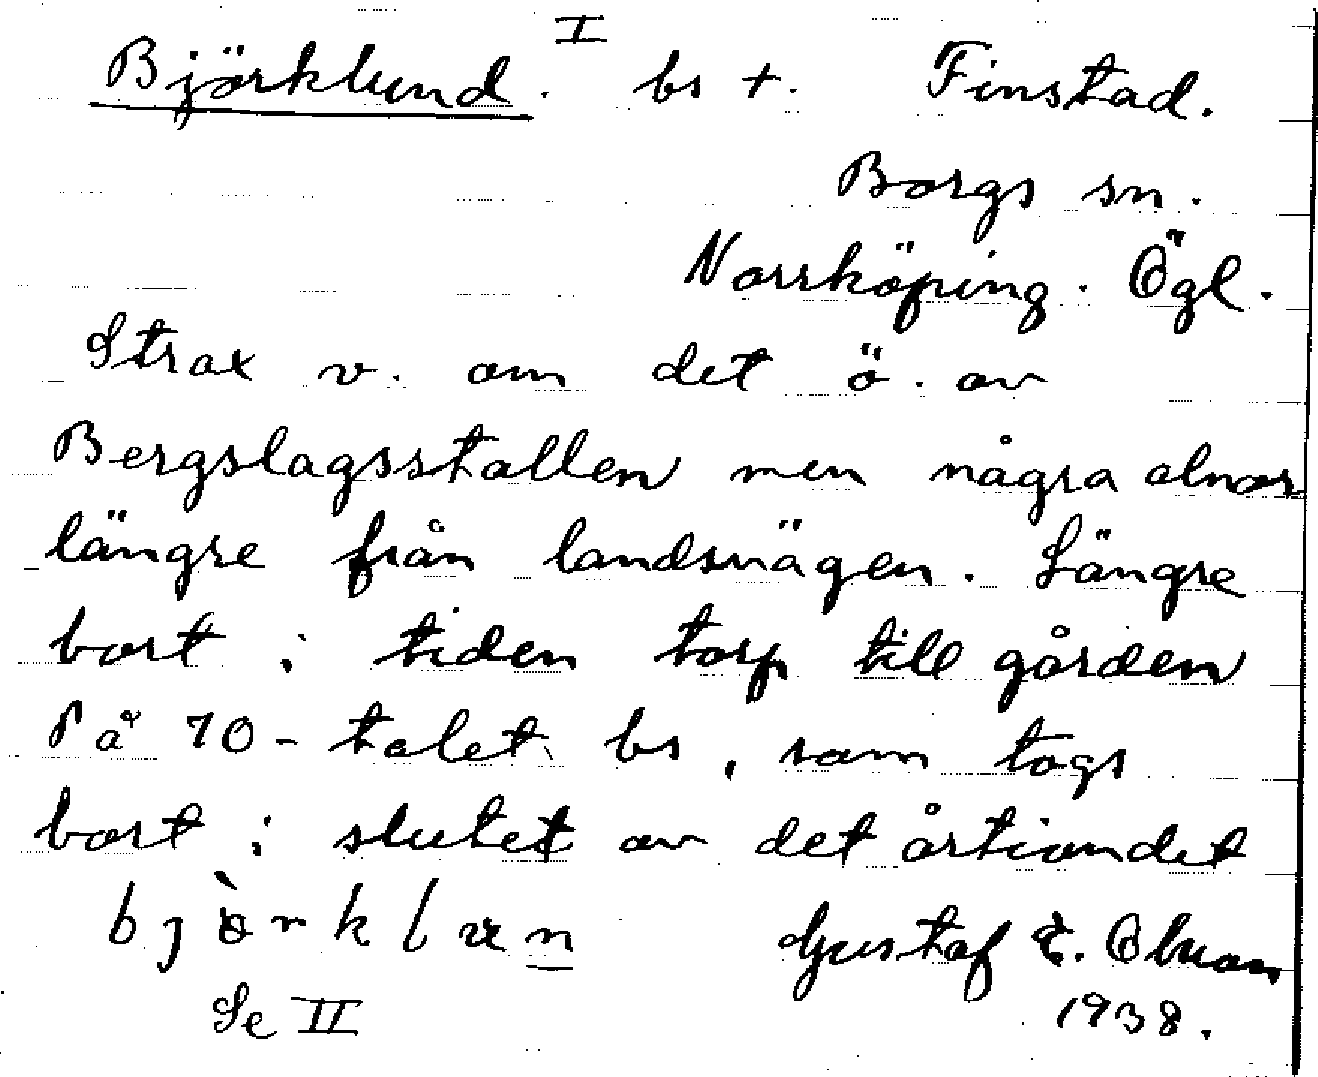 Björklund. I bs +. Finstad.
Borgs sn.
Norrköping. Ögl.
Strax v. om det ö. av
Bergslagsstallen men några alnar
längre från landsvägen. Längre
bort i tiden torp till gården
På 70-talet bs, som togs
bort i slutet av det årtiondet
Gustaf E.
Se II
1938.